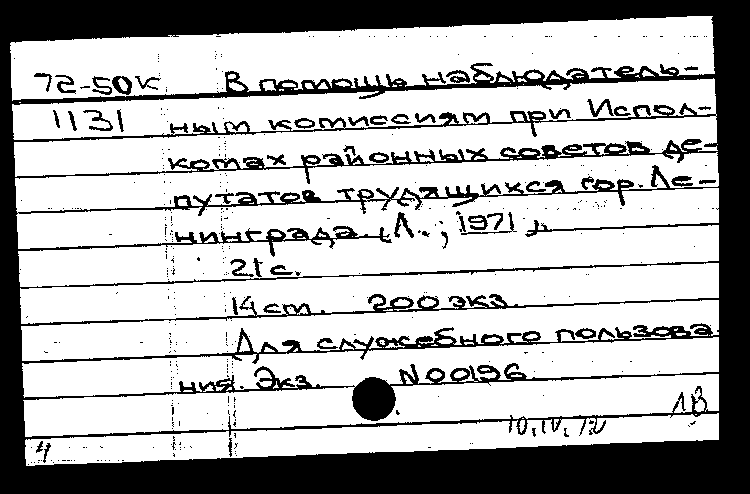 72-50К В помощь наблюдатель-
1131 ным комиссиям при Испол-
комах районных советов де-
путатов трудящихся гор. Ле-
нинграда. [Л., 1971].
21 с.
14 см. 200 экз.
Для служебного пользова
ния. Экз. N00196
10.IV.72 ЛВ
4